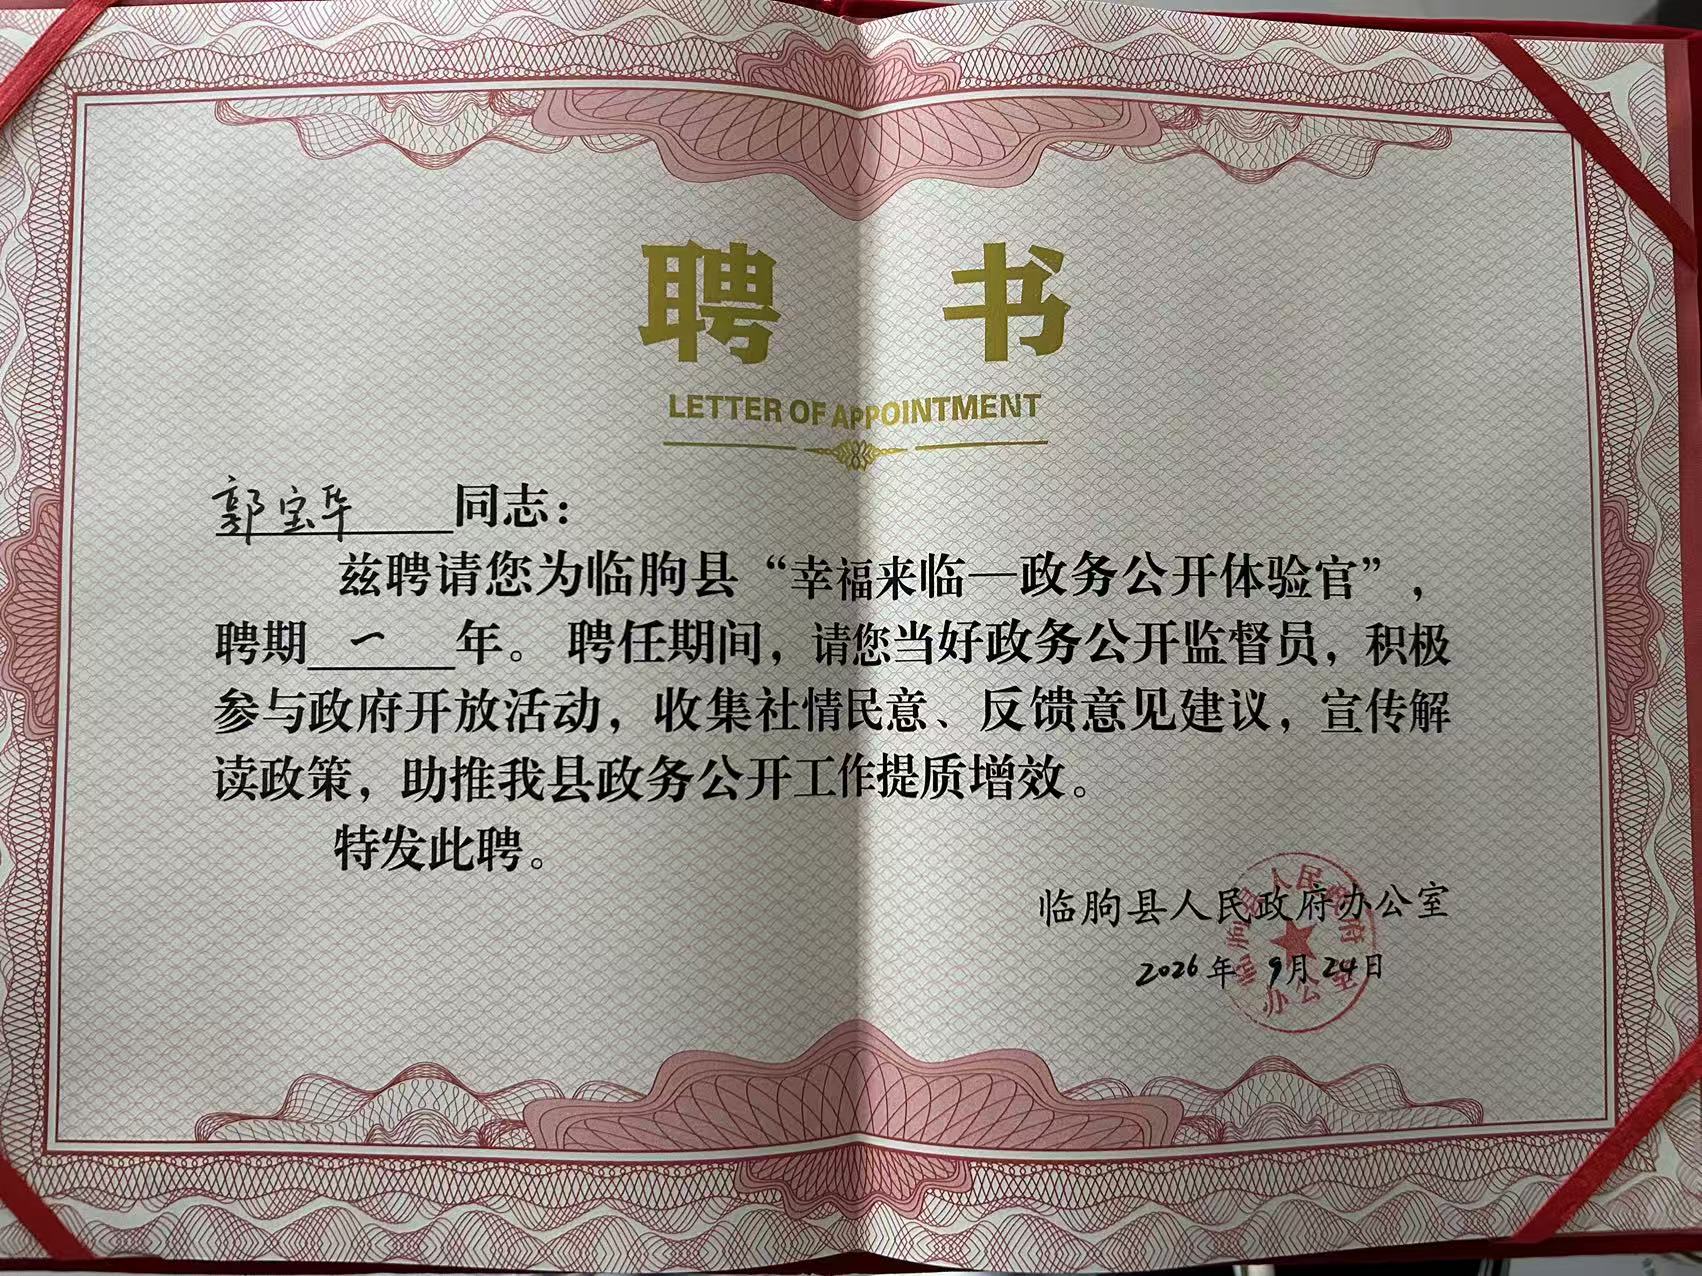 聘 书
LETTER OF APPOINTMENT
郭宝华 同志：
兹聘请您为临朐县“幸福来临—政务公开体验官”，
聘期 一 年。聘任期间，请您当好政务公开监督员，积极
参与政府开放活动，收集社情民意、反馈意见建议，宣传解
读政策，助推我县政务公开工作提质增效。
特发此聘。
临朐县人民政府办公室
2026年 9月24日
临朐县人民政府办公室